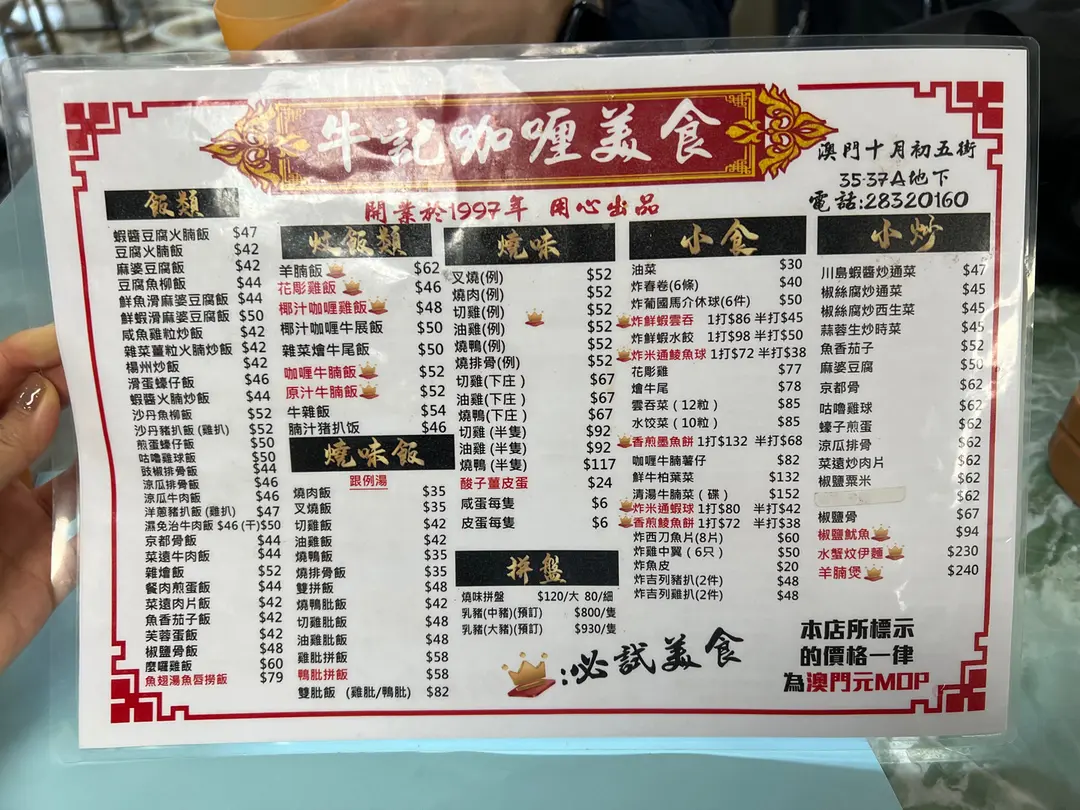 牛記咖喱美食
澳門十月初五街
35-37A地下
電話:28320160
開業於1997年 用心出品
飯類
蝦醬豆腐火腩飯 $47
豆腐火腩飯 $42
麻婆豆腐飯 $42
豆腐魚柳飯 $44
鮮魚滑麻婆豆腐飯 $44
鮮蝦滑麻婆豆腐飯 $50
咸魚雞粒炒飯 $42
雜菜薑粒火腩炒飯 $42
楊州炒飯 $42
滑蛋蠔仔飯 $46
蝦醬火腩炒飯 $44
沙丹魚柳飯 $52
沙丹豬扒飯 (雞扒) $52
煎蛋蠔仔飯 $50
咕嚕雞球飯 $50
豉椒排骨飯 $44
涼瓜排骨飯 $46
涼瓜牛肉飯 $46
洋蔥豬扒飯 (雞扒) $47
濕免治牛肉飯 $46 (干)$50
京都骨飯 $44
菜遠牛肉飯 $44
雜燴飯 $52
餐肉煎蛋飯 $44
菜遠肉片飯 $42
魚香茄子飯 $42
芙蓉蛋飯 $42
椒鹽骨飯 $48
麼囉雞飯 $60
魚翅湯魚唇撈飯 $79
炆飯類
羊腩飯 $62
花彫雞飯 $46
椰汁咖喱雞飯 $48
椰汁咖喱牛展飯 $50
雜菜燴牛尾飯 $50
咖喱牛腩飯 $52
原汁牛腩飯 $52
牛雜飯 $54
腩汁猪扒饭 $46
燒味飯
跟例湯
燒肉飯 $35
叉燒飯 $35
切雞飯 $42
油雞飯 $42
燒鴨飯 $35
燒排骨飯 $35
雙拼飯 $48
燒鴨肶飯 $42
切雞肶飯 $48
油雞肶飯 $48
雞肶拼飯 $58
鴨肶拼飯 $58
雙肶飯 (雞肶/鴨肶) $82
燒味
叉燒(例) $52
燒肉(例) $52
切雞(例) $52
油雞(例) $52
燒鴨(例) $52
燒排骨(例) $52
切雞(下庄) $67
油雞(下庄) $67
燒鴨(下庄) $67
切雞 (半隻) $92
油雞 (半隻) $92
燒鴨 (半隻) $117
酸子薑皮蛋 $24
咸蛋每隻 $6
皮蛋每隻 $6
拼盤
燒味拼盤 $120/大 80/細
乳豬(中豬)(預訂) $800/隻
乳豬(大豬)(預訂) $930/隻
小食
油菜 $30
炸春卷(6條) $40
炸葡國馬介休球(6件) $50
炸鮮蝦雲吞 1打$86 半打$45
炸鮮蝦水餃 1打$98 半打$50
炸米通鯪魚球 1打$72 半打$38
花彫雞 $77
燴牛尾 $78
雲吞菜(12粒) $85
水饺菜(10粒) $85
香煎墨魚餅 1打$132 半打$68
咖喱牛腩薯仔 $82
鮮牛柏葉菜 $132
清湯牛腩菜(碟) $152
炸米通蝦球 1打$80 半打$42
香煎鯪魚餅 1打$72 半打$38
炸西刀魚片(8片) $60
炸雞中翼(6只) $50
炸魚皮 $20
炸吉列豬扒(2件) $48
炸吉列雞扒(2件) $48
小炒
川島蝦醬炒通菜 $47
椒絲腐炒通菜 $45
椒絲腐炒西生菜 $45
蒜蓉生炒時菜 $45
魚香茄子 $52
麻婆豆腐 $50
京都骨 $62
咕嚕雞球 $62
蠔子煎蛋 $62
涼瓜排骨 $62
菜遠炒肉片 $62
椒鹽粟米 $62
$62
椒鹽骨 $67
椒鹽魷魚 $94
水蟹炆伊麵 $230
羊腩煲 $240
:必試美食
本店所標示
的價格一律
為澳門元MOP